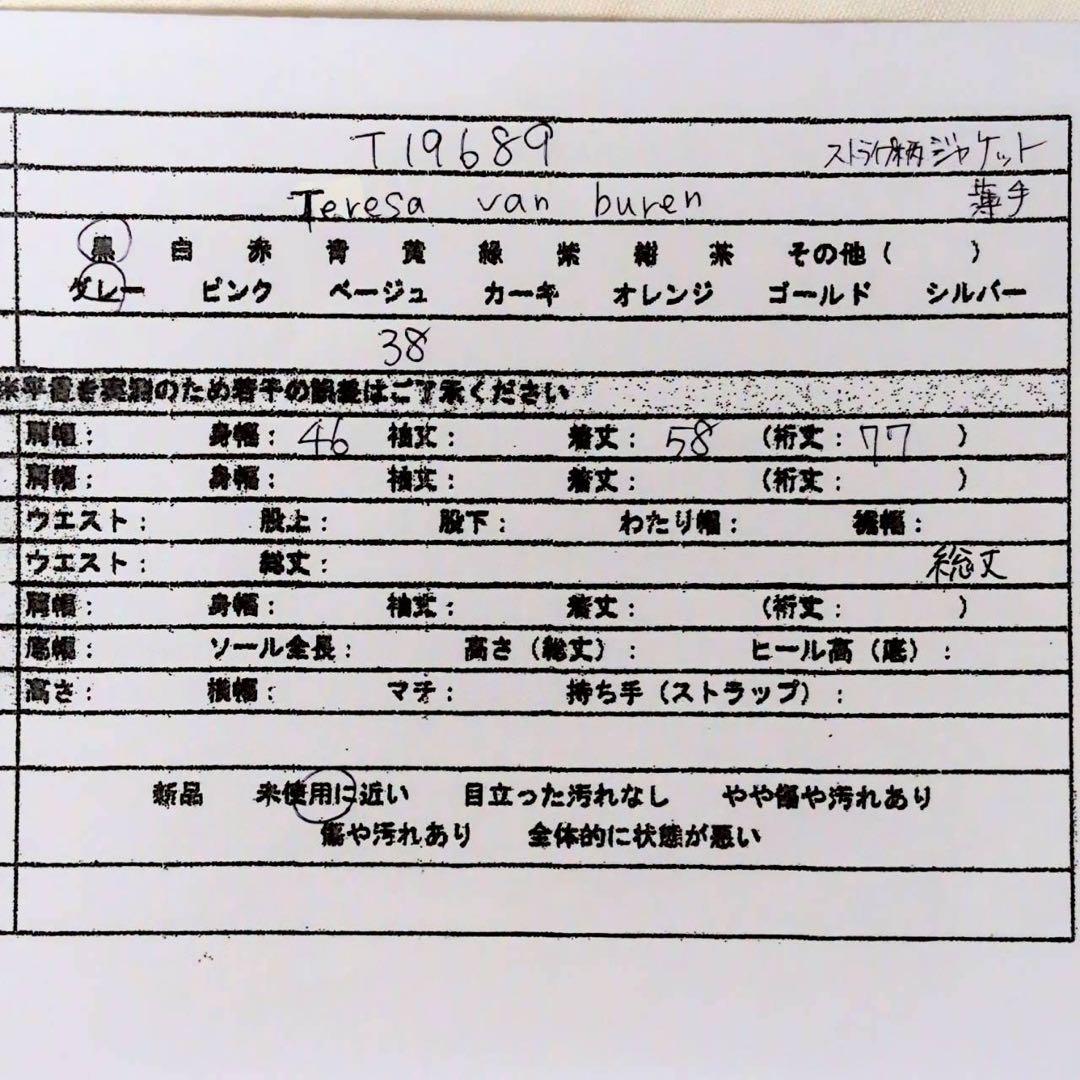 T19689 ストライプ柄ジャケット
Teresa van buren 薄手
黒 白 赤 青 黄 緑 紫 紺 茶 その他( )
グレー ピンク ベージュ カーキ オレンジ ゴールド シルバー
38
※平置き実測のため若干の誤差はご了承ください
肩幅: 身幅: 46 袖丈: 着丈: 58 (裄丈: 77 )
肩幅: 身幅: 袖丈: 着丈: (裄丈: )
ウエスト: 股上: 股下: わたり幅: 裾幅:
ウエスト: 総丈: 総丈
肩幅: 身幅: 袖丈: 着丈: (裄丈: )
底幅: ソール全長: 高さ(総丈): ヒール高(底):
高さ: 横幅: マチ: 持ち手(ストラップ):
新品 未使用に近い 目立った汚れなし やや傷や汚れあり
傷や汚れあり 全体的に状態が悪い